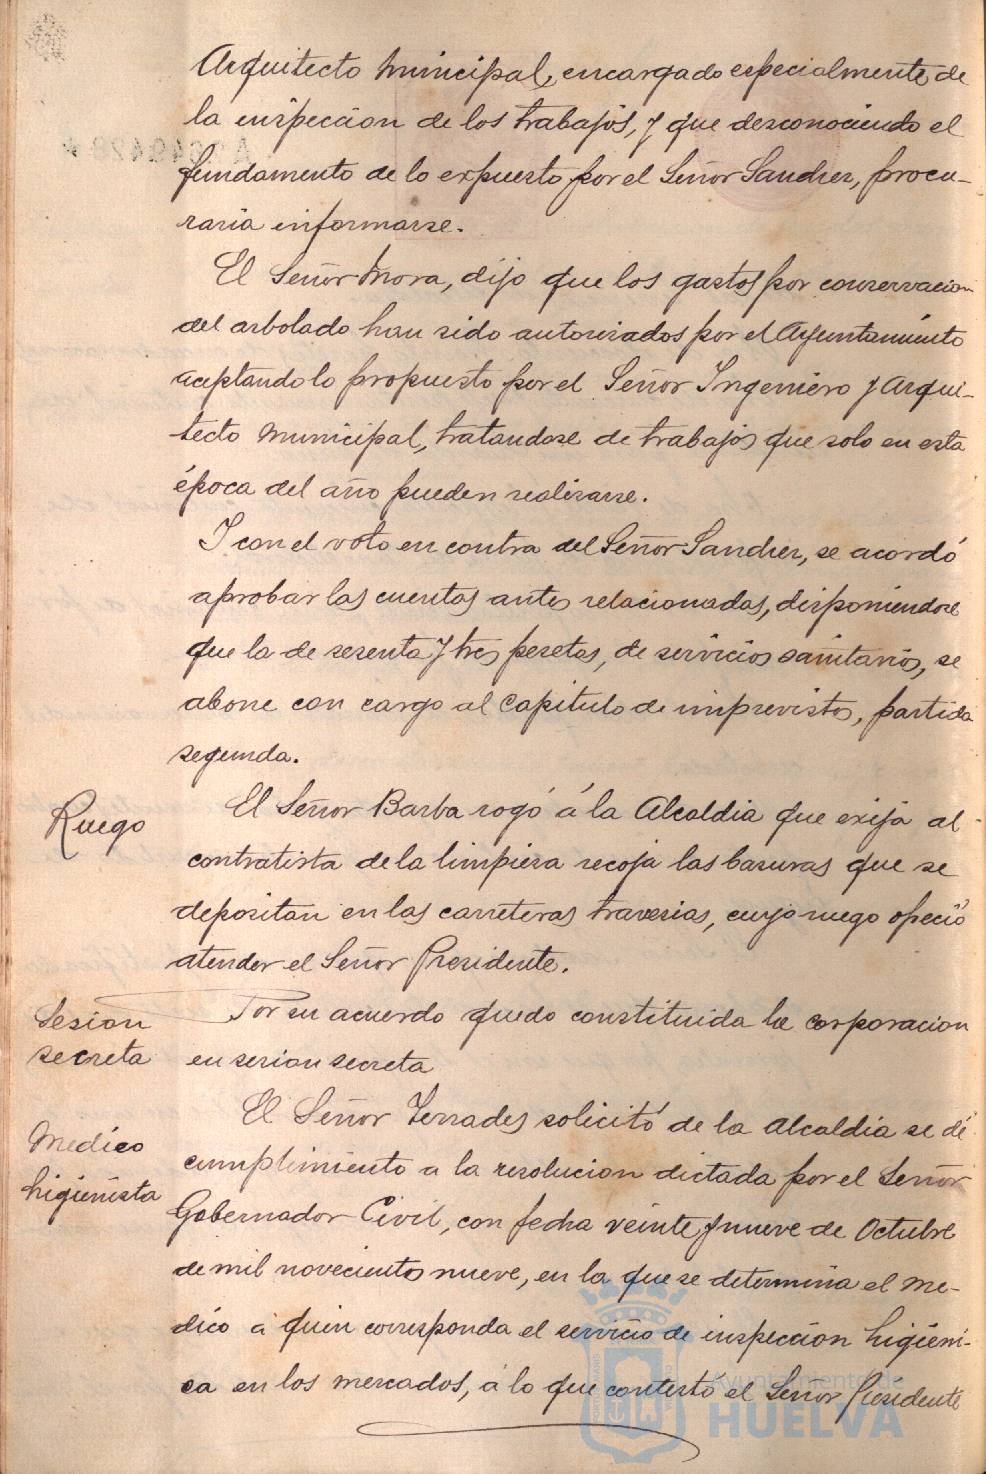 Arquitecto Municipal, encargado especialmente de
la inspeccion de los trabajos, y que desconociendo el
fundamento de lo expuesto por el Señor Sanchez, procu-
raria informarse.
El Señor Mora, dijo que los gastos por conservacion
del arbolado han sido autorizados por el Ayuntamiento
aceptando lo propuesto por el Señor Ingeniero y Arqui-
tecto Municipal, tratandose de trabajos que solo en esta
época del año pueden realizarse.
Y con el voto en contra del Señor Sanchez, se acordó
aprobar las cuentas antes relacionadas, disponiendose
que la de sesenta y tres pesetas, de servicios sanitarios, se
abone con cargo al Capitulo de imprevistos, partida
segunda.
Ruego
El Señor Barba rogó á la Alcaldia que exija al
contratista de la limpieza recoja las basuras que se
depositan en las carreteras travesias, cuyo ruego ofreció
atender el Señor Presidente.
Sesion
secreta
Por su acuerdo quedo constituida la corporacion
en sesion secreta
Medico
higienista
El Señor Terrades solicitó de la Alcaldia se dé
cumplimiento a la resolucion dictada por el Señor
Gobernador Civil, con fecha veinte y nueve de Octubre
de mil novecientos nueve, en la que se determina el Me-
dico a quien corresponda el servicio de inspeccion higieni-
ca en los mercados, á lo que contestó el Señor Presidente
Ayuntamiento de
HUELVA